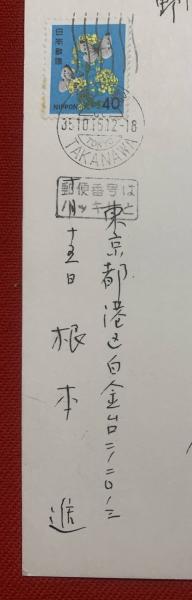 日本郵便
NIPPON 40
35.10.15.12-18
TOKYO
TAKANAWA
郵便番号は
ハッキリと
東京都港区白金台二ノ二〇ノ三
十月十五日
根本 進